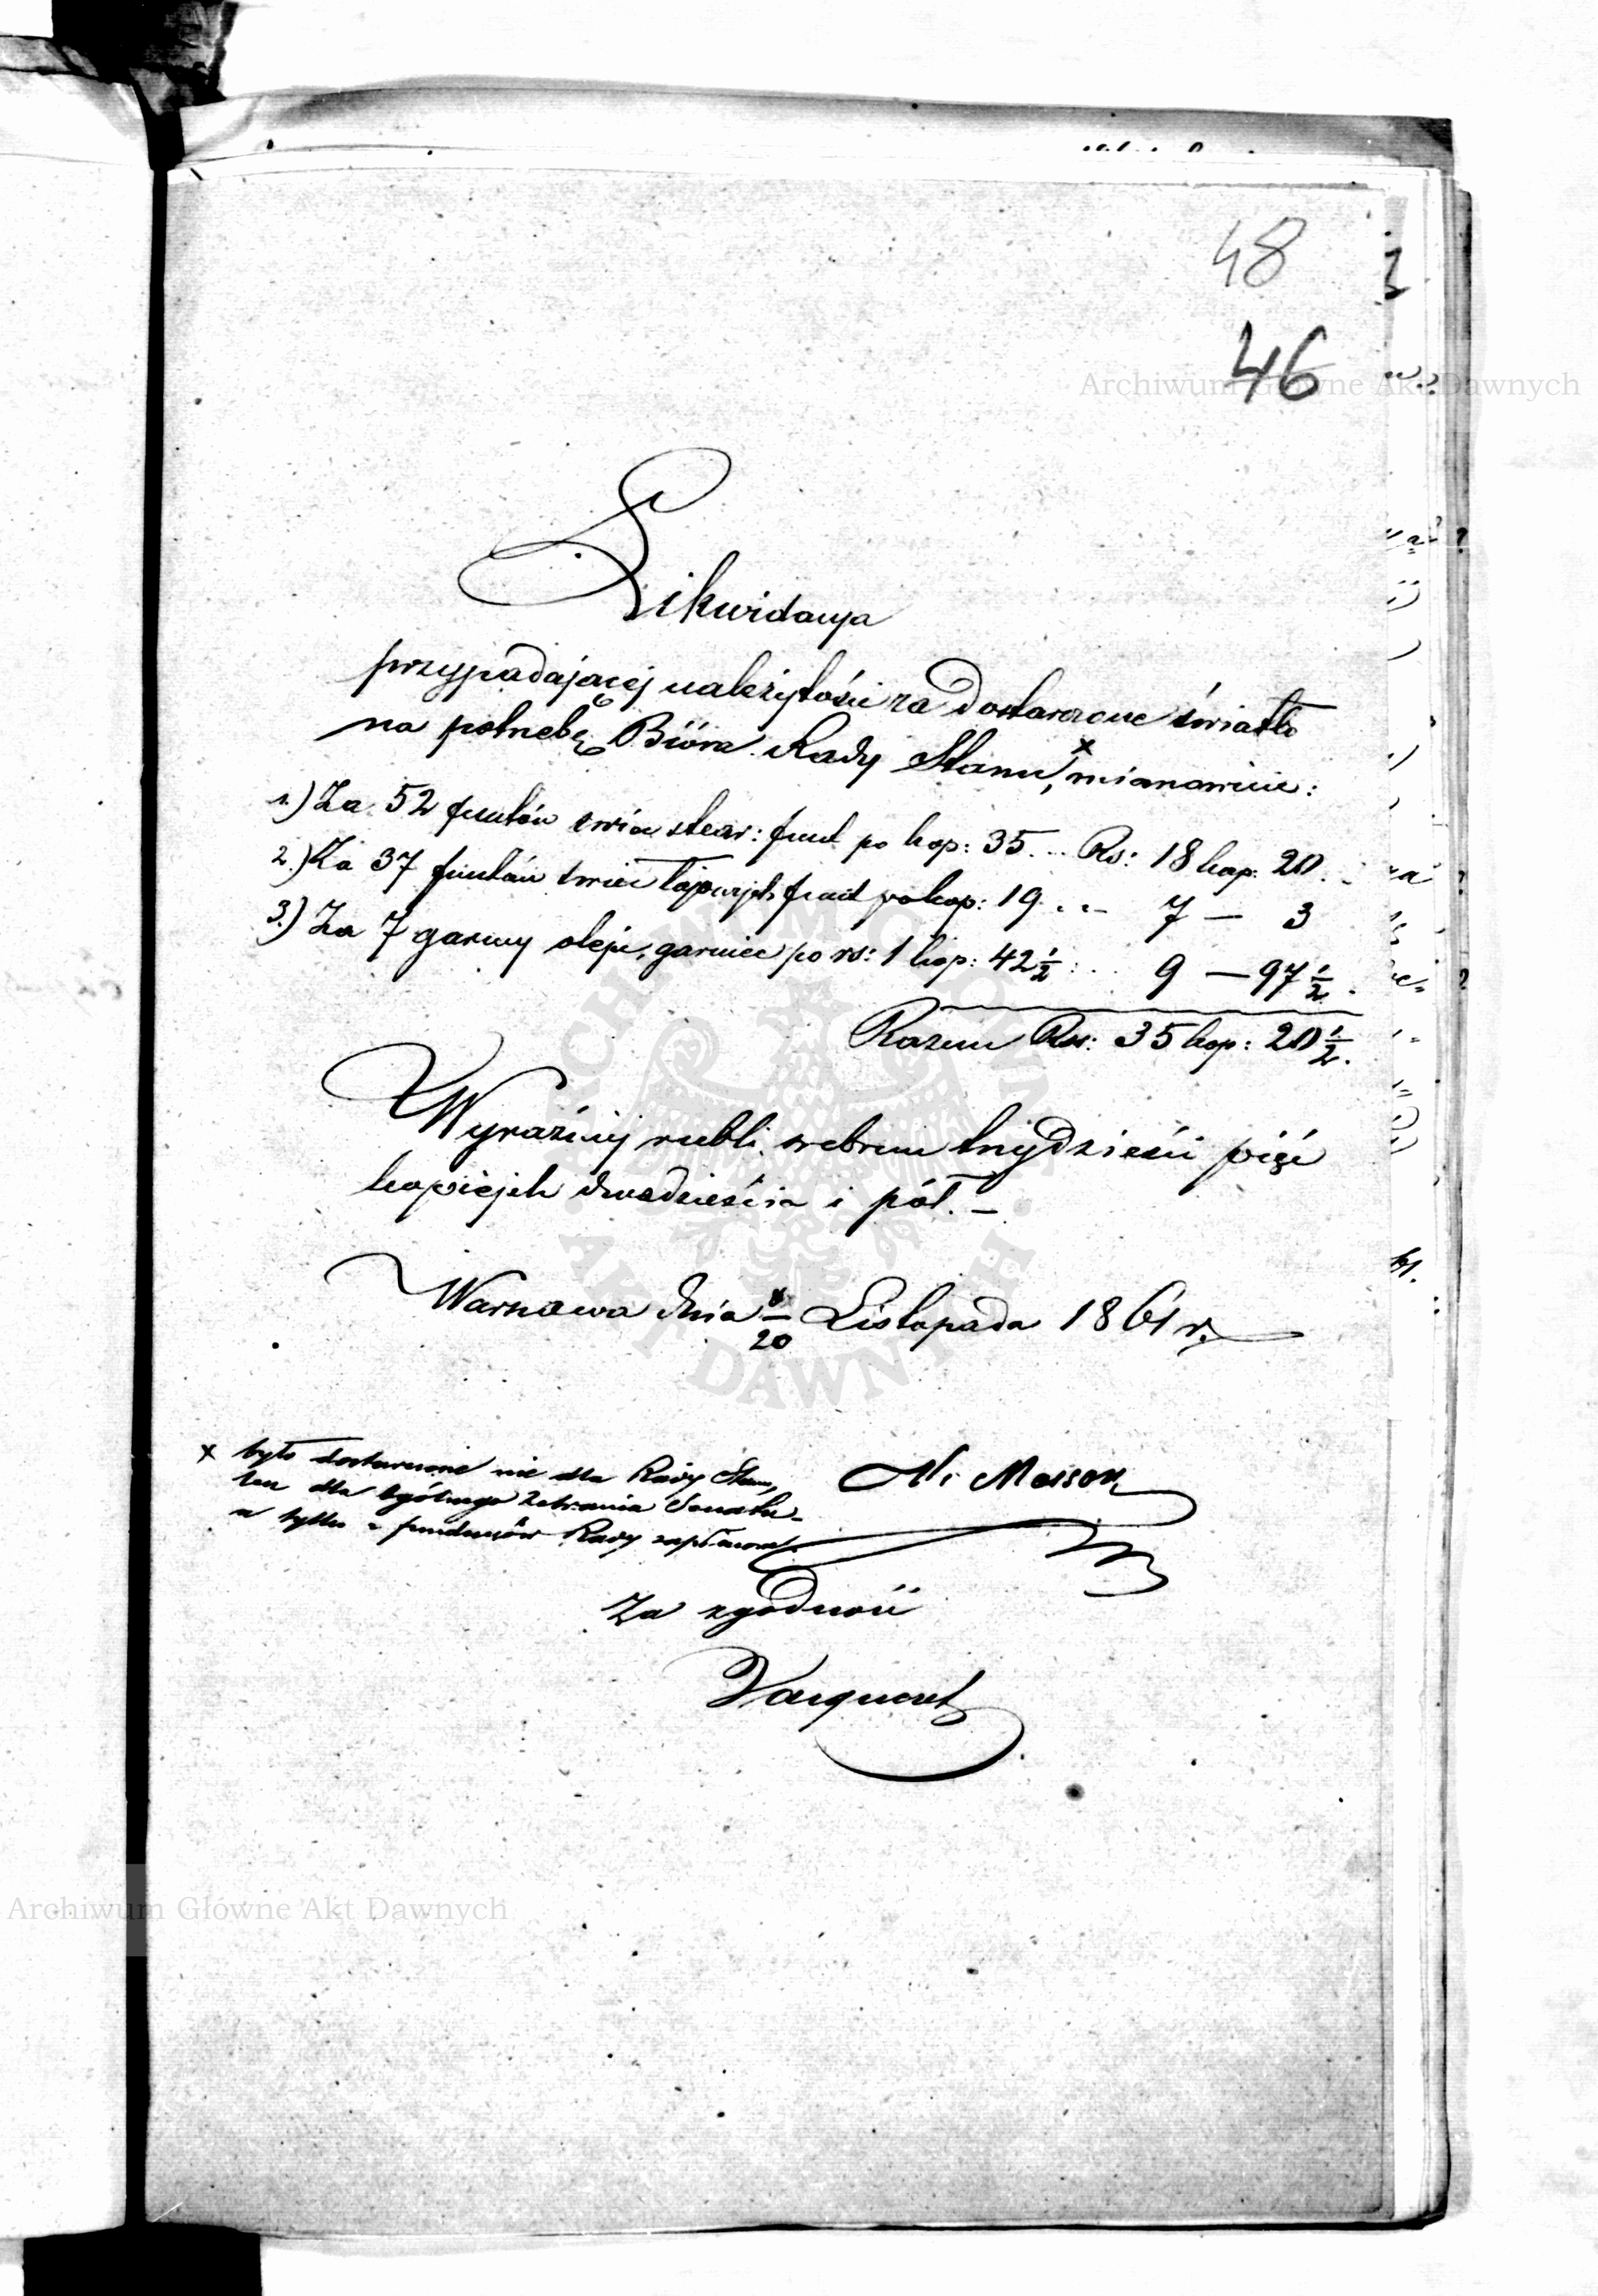 48
46
Archiwum Główne Akt Dawnych
Likwidacya
przypadającej należytości za dostarczone światło
na potrzebę Biura Rady Stanu,× mianowicie:
1.) Za 52 funtów świec stear: funt po kop: 35 . .. Rs: 18 kop: 20 . -
2.) Za 37 funtów świec łojowych funt po kop: 19 . . - 7 — 3
3.) Za 7 garncy oleju, garniec po rs: 1 kop: 42 ½ : . . 9 — 97 ½ .
Razem Rs: 35 kop: 20 ½ .
Wyraźniej rubli srebrem trzydzieści pięć
kopiejek dwadzieścia i pół. –
Warszawa dnia 8/20 Listopada 1861 r.
× było dostarczone nie dla Rady Stanu,
lecz dla Ogólnego Zebrania Senatu –
a tylko z funduszów Rady zapłacone.
Masson
Za zgodność
Archiwum Główne Akt Dawnych
ARCHIWUM GŁÓWNE AKT DAWNYCH